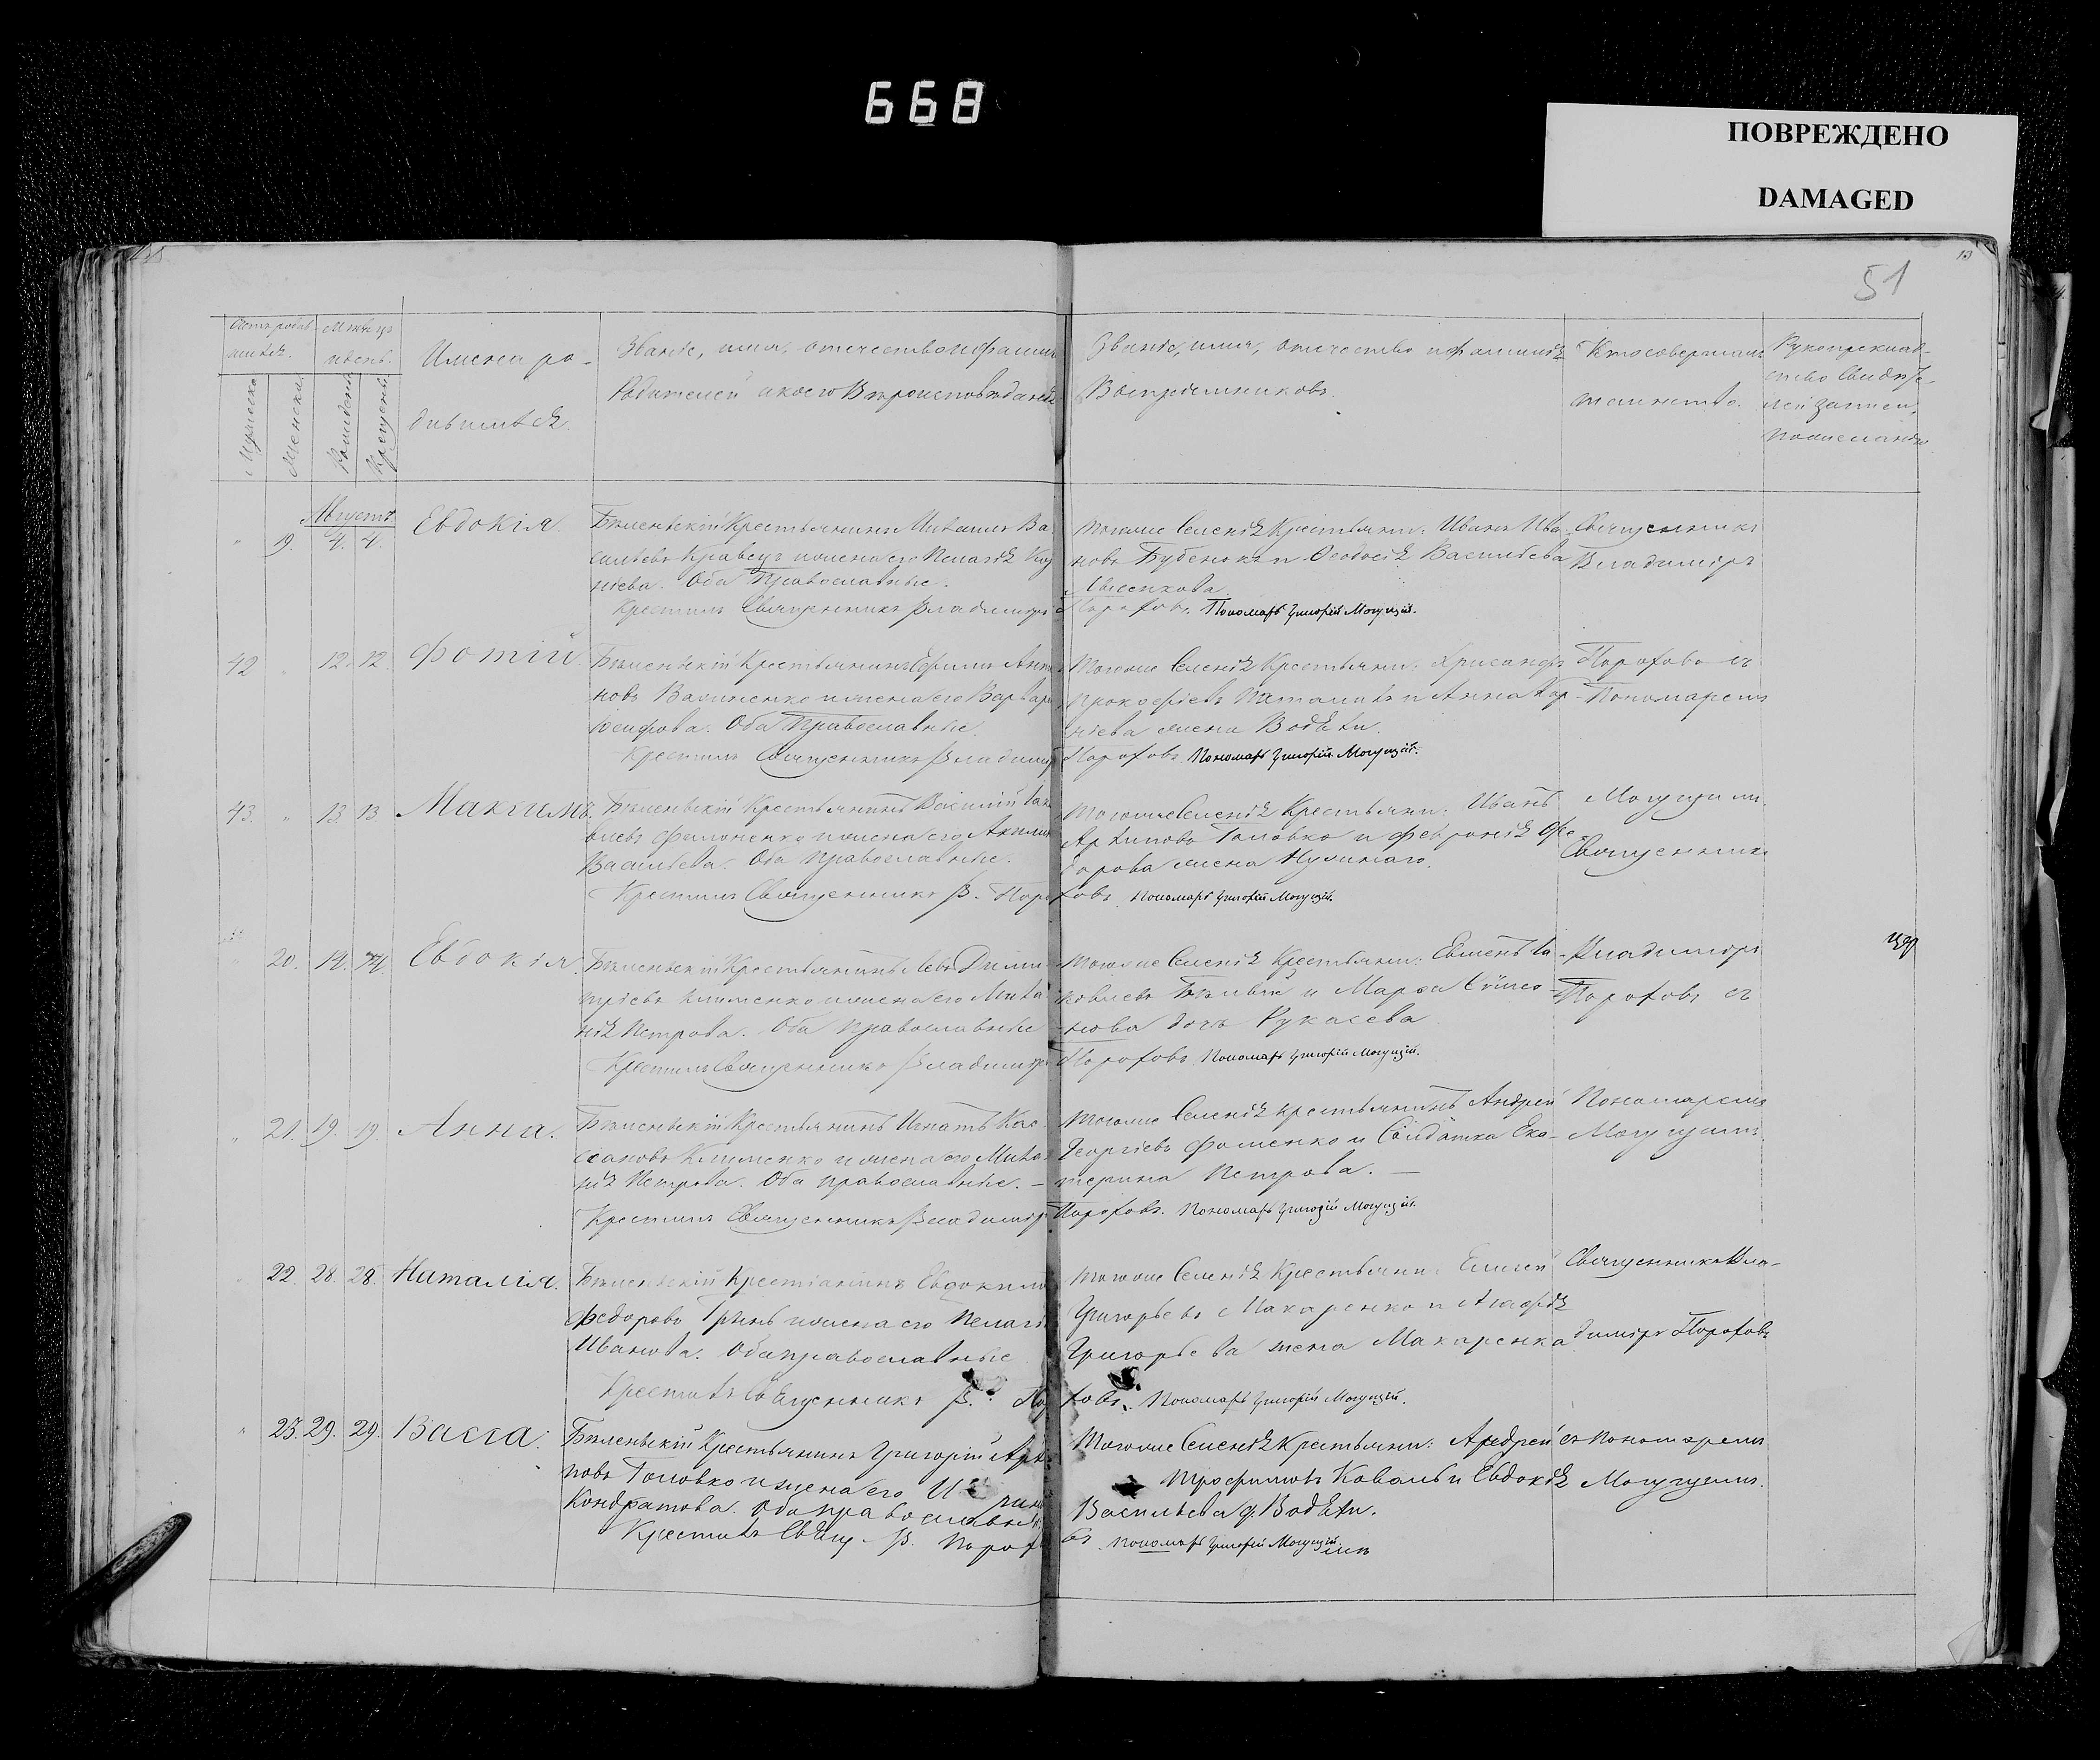 668
ПОВРЕЖДЕНО
DAMAGED
13
51
Счетъ родив
шихся.
Мѣсяцъ
и день.
Мужеска
Женска
Рожденія
Крещенія
Имена ро-
дившихся.
Званіе, имя, отечество и фамилія
Родителей и какого Вѣроисповѣданія
Званіе, имя, отечество и фамилія
Воспріемниковъ.
Кто совершалъ
таинство.
Рукоприклад-
ство свидѣте-
лей записи
по желанію
Августъ
" 19. 4. 4. Евдокія.
Бѣленьскій Крестьянинъ Михаилъ Ва-
сильевъ Кравецъ и жена его Пелагія
Оба Православные.
Крестилъ Священникъ Владиміръ Порохов. Пономарь Григорій Могуцій.
Тогоже Селенія Крестьяни: Иванъ Ива-
новъ Бубенокъ и Ѳеодосія Васильева
Священникъ
Владиміръ
42 " 12. 12. Фотій.
Бѣленьскій Крестьянинъ Анто-
новъ и жена его Варвара
Оба Православные.
Крестилъ Священникъ Владиміръ Пороховъ. Пономарь Григорій Могуцій.
Тогоже Селенія Крестьяни: Хрисанфъ
Прокофіевъ и Анна
жена
Пороховъ съ
Пономаремъ
43. " 13. 13. Максимъ.
Бѣленьскій Крестьянинъ Василій Яков-
левъ Филоненко и жена его Акилина
Васильева. Оба Православные.
Крестилъ Священникъ В. Пороховъ Пономарь Григорій Могуцій.
Тогоже Селенія Крестьяни: Иванъ
Архиповъ Головко и Февронія Фе-
дорова жена
Могуцимъ.
Священникъ
" 20. 14. 14. Евдокія.
Бѣленьскій Крестьянинъ Левъ Дими-
тріевъ Клименко и жена его Миха-
Петрова. Оба Православные
Крестилъ Священникъ Владиміръ Пороховъ Пономарь Григорій Могуцій.
Тогоже Селенія Крестьяни: Евменъ Яа-
ковлевъ и Марѳа Симео-
нова дочь Рукасева
Владиміръ
Пороховъ съ
" 21. 19. 19. Анна.
Бѣленьскій Крестьянинъ Игнатъ Кас-
сіановъ Клименко и жена его Миха-
Петрова. Оба православные. —
Крестилъ Священникъ Владиміръ Пороховъ. Пономарь Григорій Могуцій.
Тогоже Селенія крестьянинъ Андрей
Георгіевъ Фоменко и Солдатка Ека-
терина Петрова. —
Пономаремъ
Могуцимъ
" 22. 28. 28. Наталія.
Бѣленьскій Крестіанинъ Евдокимъ
Федоровъ Грынь и жена его Пелагія
Иванова. Оба православные
Крестилъ Священникъ В. Пороховъ. Пономарь Григорій Могуцій.
Тогоже Селенія Крестьяни: Елисей
Григорьевъ Макаренко и Агафія
Григорьева жена Макаренка
Священникъ Вла-
диміръ Пороховъ
" 23. 29. 29. Васса.
Бѣленьскій Крестьянинъ Григорій Архи-
повъ Головко и жена его Ирина
Кондратова. Оба православные
Крестилъ Свящ. В. Пороховъ Пономарь Григорій Могуцій.
Тогоже Селенія Крестьяни: Андрей
Трофимовъ Коваль и Евдокія
Васильева
съ пономаремъ
Могуцимъ.